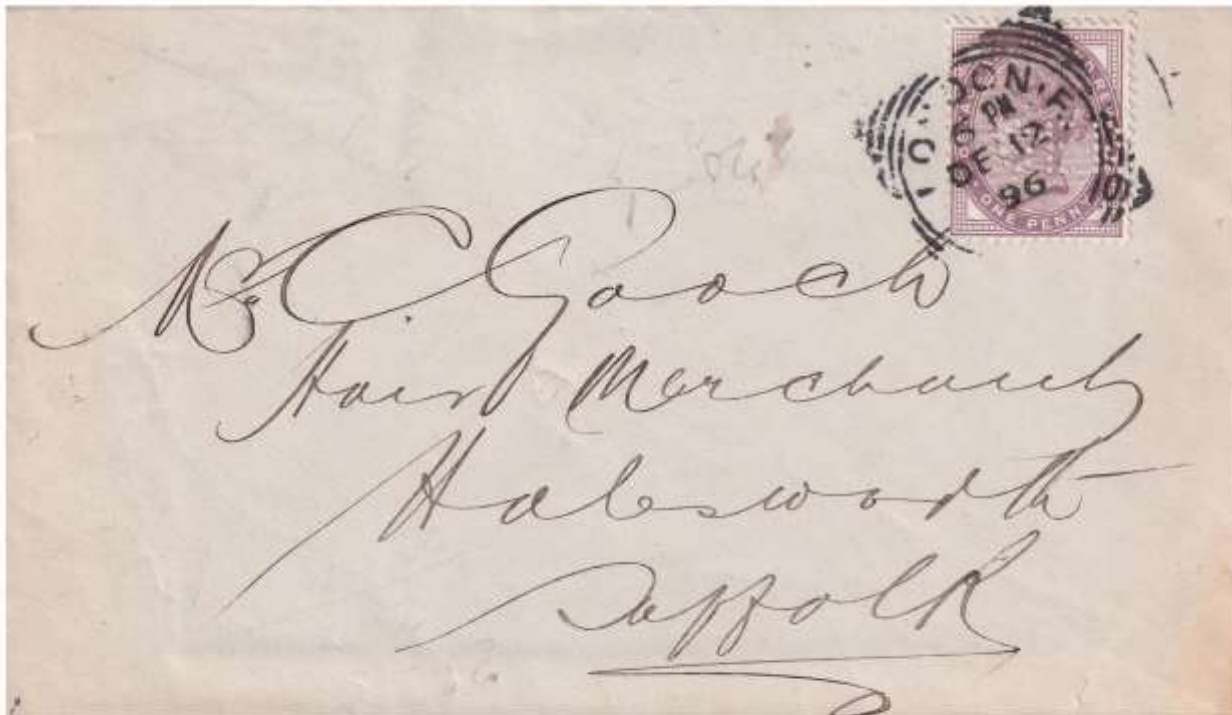 LONDON.F.
6 PM
DE 12
96
101
ONE PENNY
Mr C Gooch
Hair Merchant
Halesworth
Suffolk